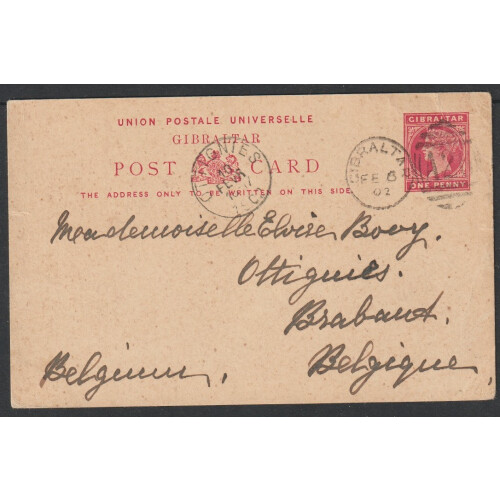 UNION POSTALE UNIVERSELLE
GIBRALTAR
POST CARD
THE ADDRESS ONLY TO BE WRITTEN ON THIS SIDE
GIBRALTAR
ONE PENNY
GIBRALTAR
FE 6
02
OTTIGNIES
Mademoiselle Elvire Bovy.
Ottignies.
Brabant.
Belgium. Belgique.